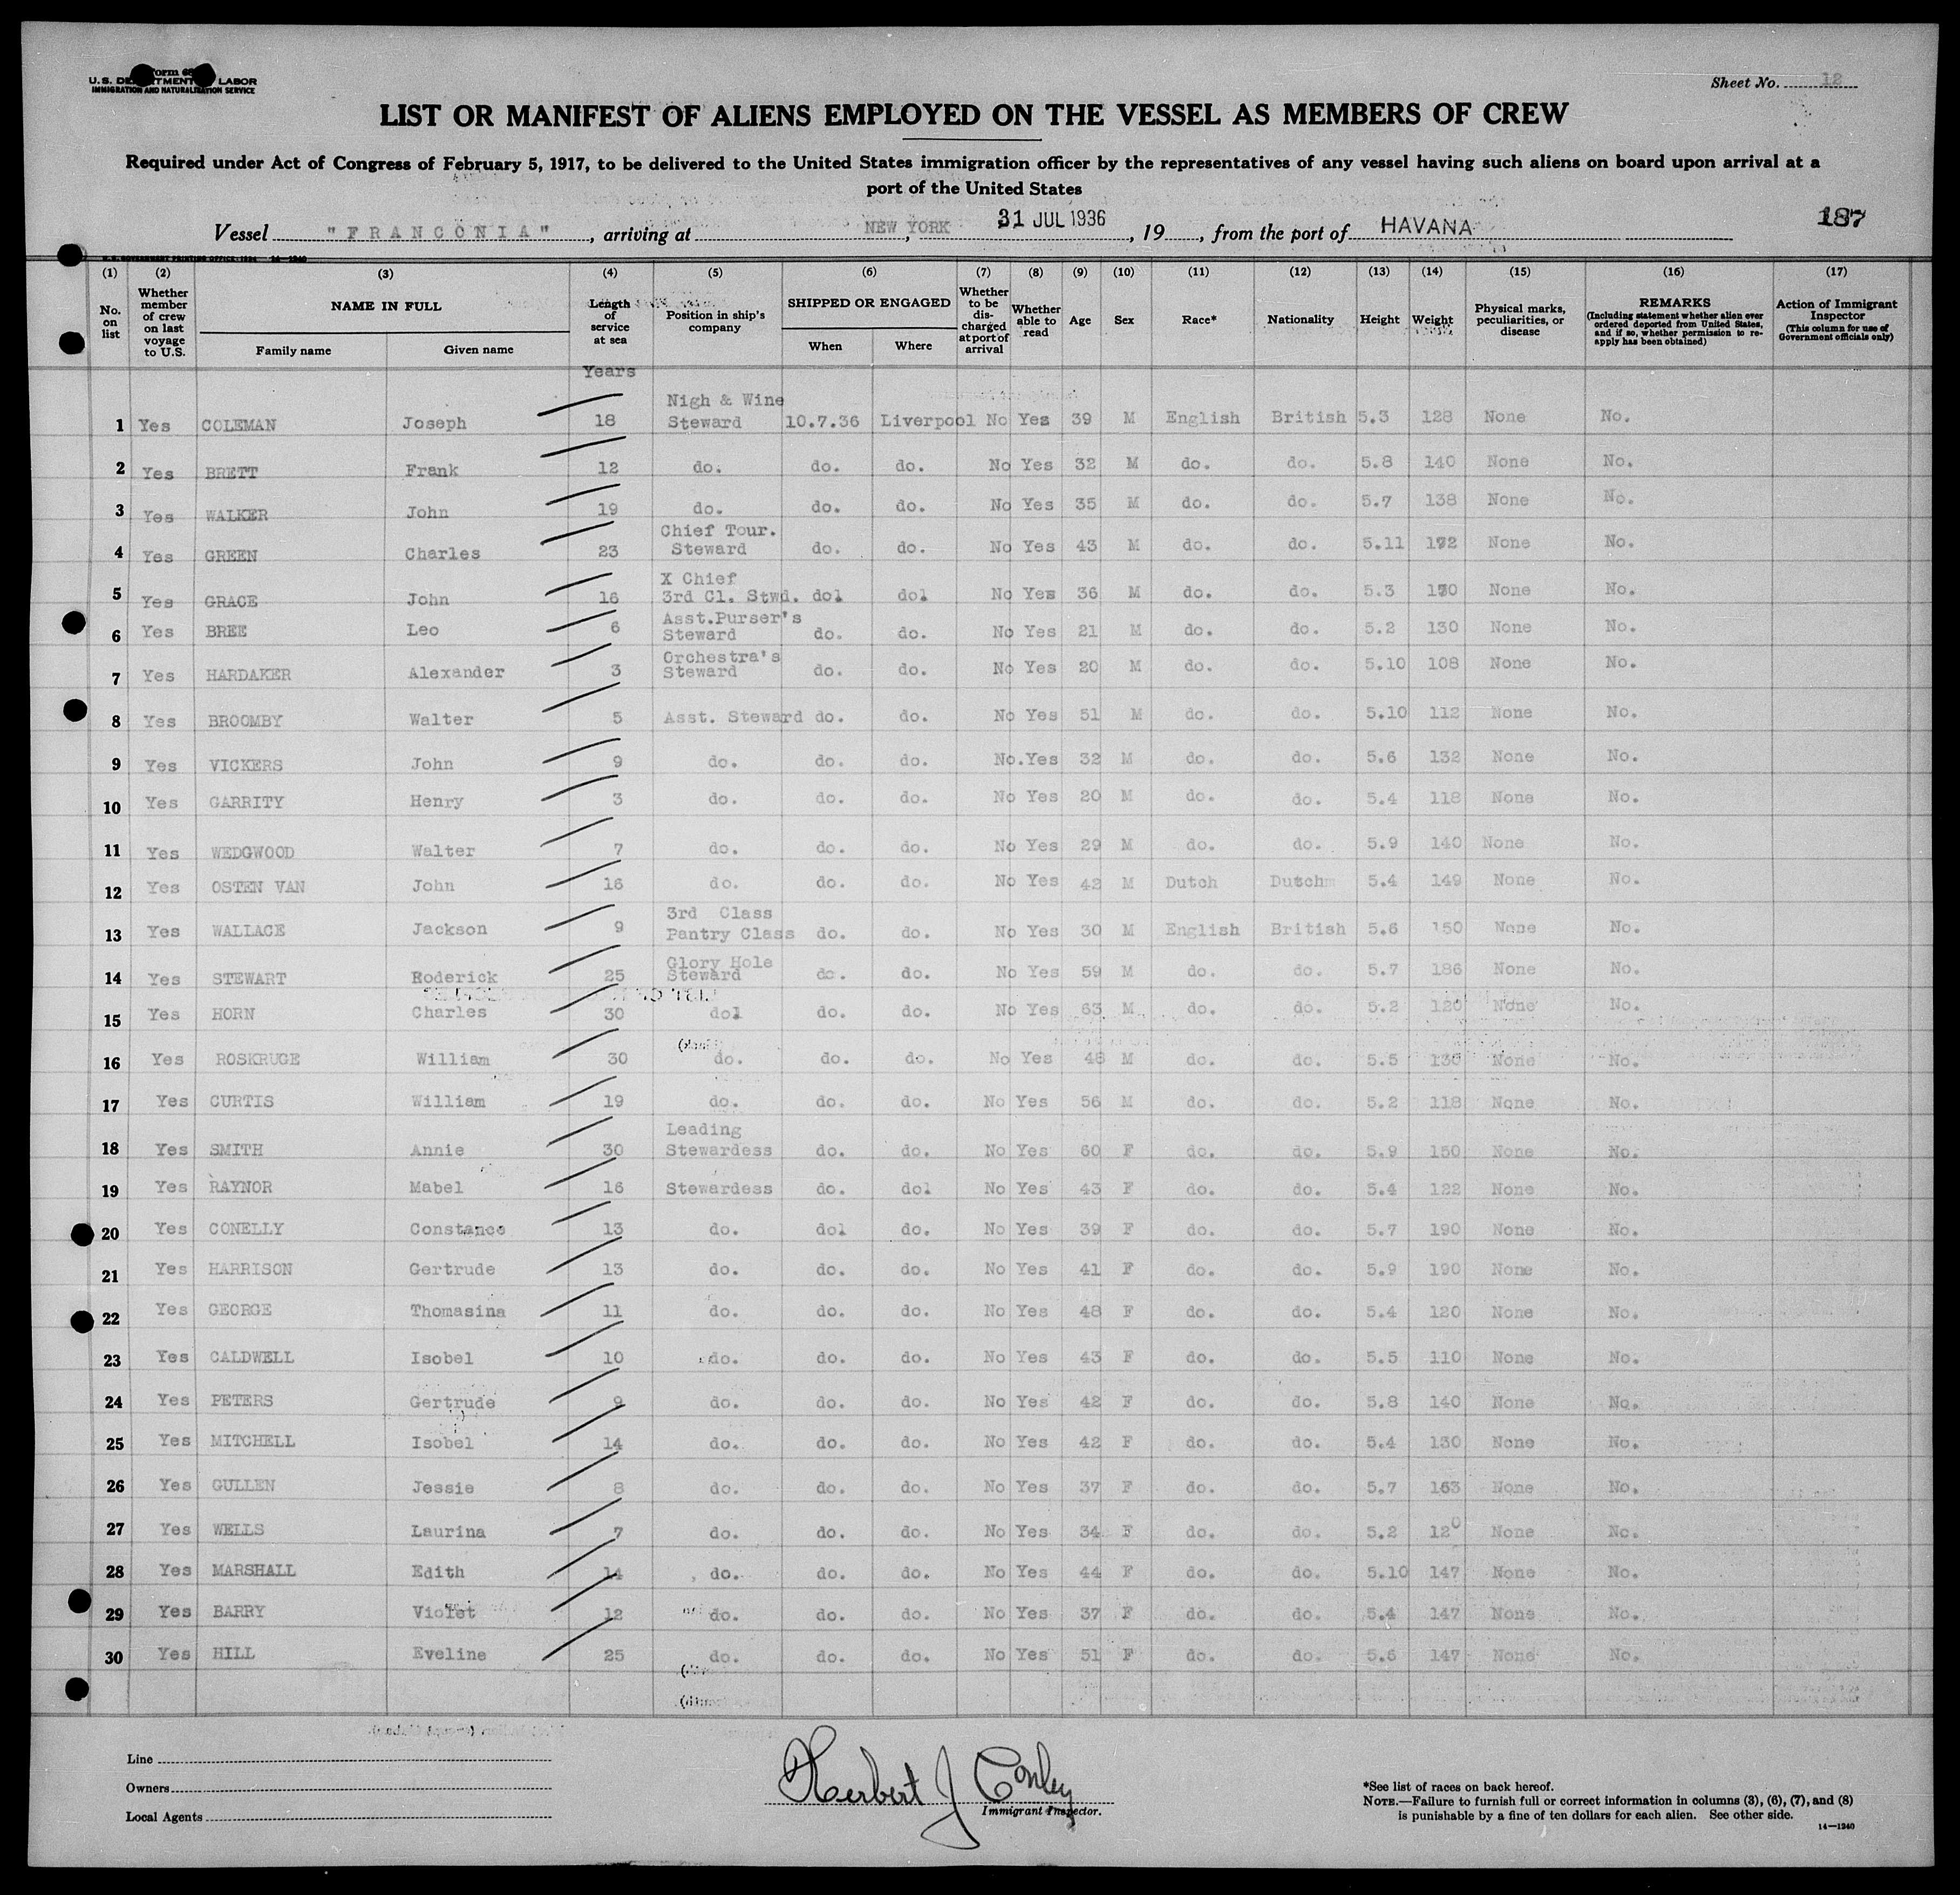 U.S. DEPARTMENT LABOR
IMMIGRATION AND NATURALIZATION SERVICE
Sheet No. 12
LIST OR MANIFEST OF ALIENS EMPLOYED ON THE VESSEL AS MEMBERS OF CREW
Required under Act of Congress of February 5, 1917, to be delivered to the United States immigration officer by the representatives of any vessel having such aliens on board upon arrival at a
port of the United States
187
Vessel "FRANCONIA", arriving at NEW YORK, 31 JUL 1936, 19, from the port of HAVANA
(1) (2) (3) (4) (5) (6) (7) (8) (9) (10) (11) (12) (13) (14) (15) (16) (17)
No. on list Whether member of crew on last voyage to U.S. NAME IN FULL Family name Given name Length of service at sea Position in ship's company SHIPPED OR ENGAGED When Where Whether to be discharged at port of arrival Whether able to read Age Sex Race* Nationality Height Weight Physical marks, peculiarities, or disease REMARKS (Including statement whether alien ever ordered deported from United States, and if so, whether permission to reapply has been obtained) Action of Immigrant Inspector (This column for use of Government officials only)
Years
1 Yes COLEMAN Joseph 18 Nigh & Wine Steward 10.7.36 Liverpool No Yes 39 M English British 5.3 128 None No.
2 Yes BRETT Frank 12 do. do. do. No Yes 32 M do. do. 5.8 140 None No.
3 Yes WALKER John 19 do. do. do. No Yes 35 M do. do. 5.7 138 None No.
4 Yes GREEN Charles 23 Chief Tour. Steward do. do. No Yes 43 M do. do. 5.11 None No.
5 Yes GRACE John 16 X Chief 3rd Cl. Stwd. dol dol No Yes 36 M do. do. 5.3 None No.
6 Yes BREE Leo 6 Asst.Purser's Steward do. do. No Yes 21 M do. do. 5.2 130 None No.
7 Yes HARDAKER Alexander 3 Orchestra's Steward do. do. No Yes 20 M do. do. 5.10 108 None No.
8 Yes BROOMBY Walter 5 Asst. Steward do. do. No Yes 51 M do. do. 5.10 112 None No.
9 Yes VICKERS John 9 do. do. do. No.Yes 32 M do. do. 5.6 132 None No.
10 Yes GARRITY Henry 3 do. do. do. No Yes 20 M do. do. 5.4 118 None No.
11 Yes WEDGWOOD Walter 7 do. do. do. No Yes 29 M do. do. 5.9 140 None No.
12 Yes OSTEN VAN John 16 do. do. do. No Yes 42 M Dutch Dutchm 5.4 149 None No.
13 Yes WALLACE Jackson 9 3rd Class Pantry Class do. do. No Yes 30 M English British 5.6 150 None No.
14 Yes STEWART Roderick 25 Glory Hole Steward do. do. No Yes 59 M do. do. 5.7 186 None No.
15 Yes HORN Charles 30 dol do. do. No Yes 63 M do. do. 5.2 120 None No.
16 Yes ROSKRUGE William 30 do. do. do. No Yes 48 M do. do. 5.5 None No.
17 Yes CURTIS William 19 do. do. do. No Yes 56 M do. do. 5.2 118 None No.
18 Yes SMITH Annie 30 Leading Stewardess do. do. No Yes 60 F do. do. 5.9 150 None No.
19 Yes RAYNOR Mabel 16 Stewardess do. dol No Yes 43 F do. do. 5.4 122 None No.
20 Yes CONELLY Constance 13 do. dol do. No Yes 39 F do. do. 5.7 190 None No.
21 Yes HARRISON Gertrude 13 do. do. do. No Yes 41 F do. do. 5.9 190 None No.
22 Yes GEORGE Thomasina 11 do. do. do. No Yes 48 F do. do. 5.4 120 None No.
23 Yes CALDWELL Isobel 10 do. do. do. No Yes 43 F do. do. 5.5 110 None No.
24 Yes PETERS Gertrude 9 do. do. do. No Yes 42 F do. do. 5.8 140 None No.
25 Yes MITCHELL Isobel 14 do. do. do. No Yes 42 F do. do. 5.4 130 None No.
26 Yes GULLEN Jessie 8 do. do. do. No Yes 37 F do. do. 5.7 163 None No.
27 Yes WELLS Laurina 7 do. do. do. No Yes 34 F do. do. 5.2 120 None No.
28 Yes MARSHALL Edith 14 do. do. do. No Yes 44 F do. do. 5.10 147 None No.
29 Yes BARRY Violet 12 do. do. do. No Yes 37 F do. do. 5.4 147 None No.
30 Yes HILL Eveline 25 do. do. do. No Yes 51 F do. do. 5.6 147 None No.
Line
Owners
Local Agents
Herbert J Conley
Immigrant Inspector.
*See list of races on back hereof.
NOTE.—Failure to furnish full or correct information in columns (3), (6), (7), and (8)
is punishable by a fine of ten dollars for each alien. See other side.
14—1240